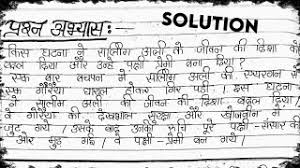 प्रश्न अभ्यास:-
SOLUTION
किस घटना ने सालीम अली के जीवन की दिशा को
बदल दिया और उन्हें पक्षी प्रेमी बना दिया?
एक बार बचपन में सालीम अली की एयरगन से
एक गौरैया घायल होकर गिर पड़ी। इस घटना
ने सालीम अली के जीवन की दिशा को बदल दिया
वे गौरैया की देखभाल सुरक्षा और खोजबीन में
जुट गए। उसके बाद उनकी रुचि पूरे पक्षी-संसार की
ओर मुड़ गई। वे पक्षी-प्रेमी बन गए।